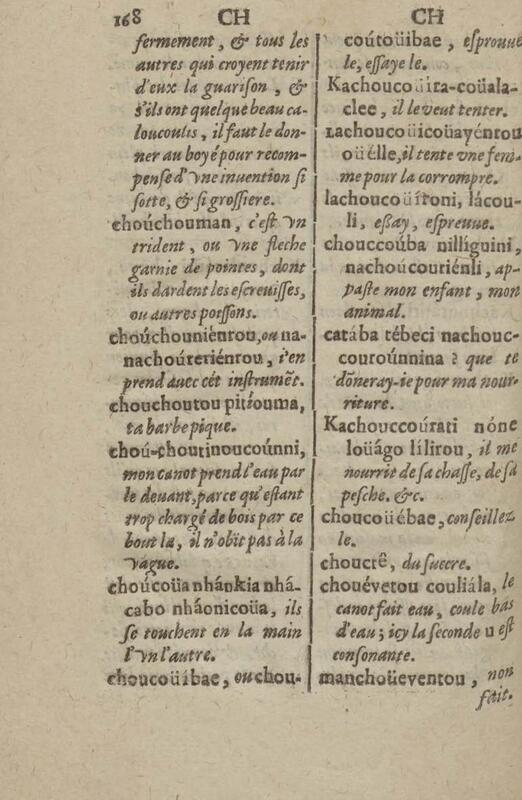 168
CH
CH
fermement, & tous les
autres qui croyent tenir
d'eux la guarison, &
s'ils ont quelque beau ca-
loucoulis, il faut le don-
ner au boyé pour recom-
pense d'vne inuention si
sotte, & si grossiere.
choúchouman, c'est vn
trident, ou vne fleche
garnie de pointes, dont
ils dardent les escreuisses,
ou autres poissons.
choúchouniéntou, ou na-
nachoúteriéntou, i'en
prend auec cét instrumēt.
chouchoutou pitíouma,
ta barbe pique.
choú-choutinoucoúnni,
mon canot prend l'eau par
le deuant, parce qu'estant
trop chargé de bois par ce
bout la, il n'obït pas à la
vague.
choúcoüa nhánkia nhá-
cabo nháonicoüa, ils
se touchent en la main
l'vn l'autre.
choucoüíbae, ou chou-
coútoüibae, esprouue
le, essaye le.
Kachoucoüira-coüala-
clee, il le veut tenter.
Lachoucoüicoüayéntou
oüélle, il tente vne fem-
me pour la corrompre.
lachoucoüítoni, lácou-
li, essay, espreuue.
chouccoúba nillíguini,
nachoúcouriénli, ap-
paste mon enfant, mon
animal.
catába tébeci nachouc-
couroúnnina? que te
dōneray-ie pour ma nour-
riture.
Kachouccoúrati nóne
loüágo lílirou, il me
nourrit de sa chasse, de sa
pesche. &c.
choucoüébae, conseillez
le.
chouctê, du succre.
chouévetou couliála, le
canot fait eau, coule bas
d'eau; icy la seconde u est
consonante.
manchoüeventou, non
fait.